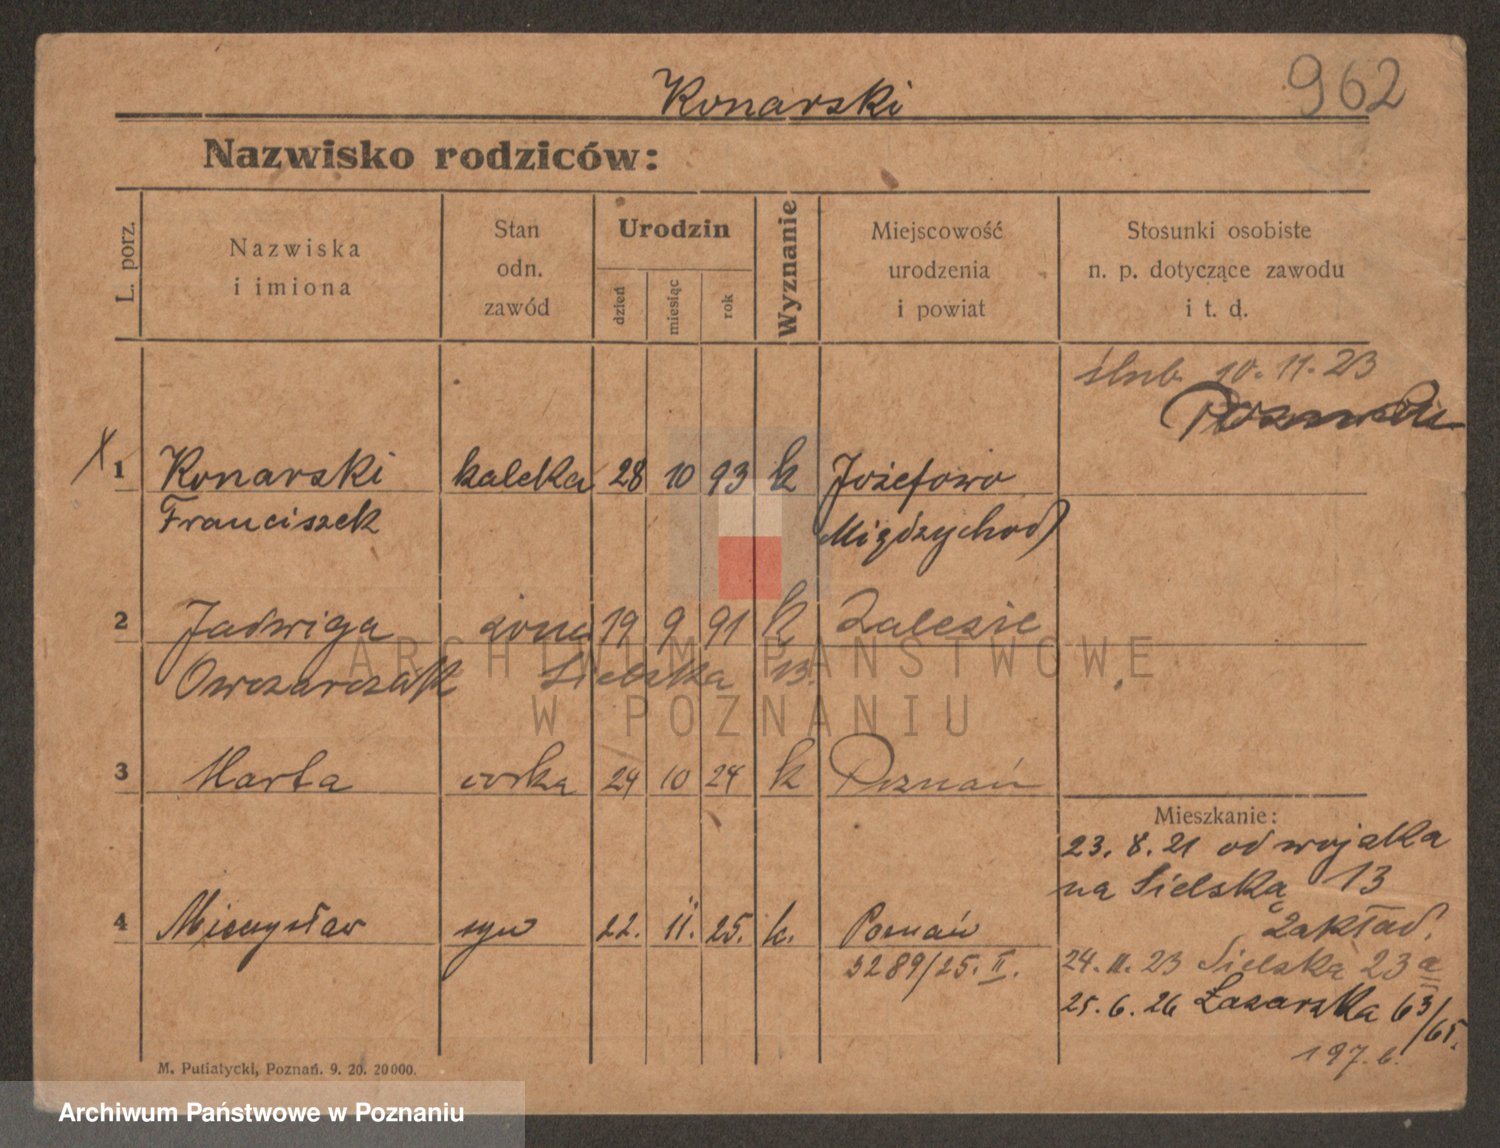 962
Konarski
Nazwisko rodziców:
L. porz.
Nazwiska
i imiona
Stan
odn.
zawód
Urodzin
dzień
miesiąc
rok
Wyznanie
Miejscowość
urodzenia
i powiat
Stosunki osobiste
n. p. dotyczące zawodu
i t. d.
ślub. 10.11.23
X 1 Konarski kaleka 28 10 93 k Józefowo
Franciszek Międzychod
2 Jadwiga żona 19 9 91 k Zalesie
Owczarczak Sielska 13.
3 Marta córka 24 10 24 k Poznań
Mieszkanie:
23. 8. 21 od wojska
na Sielską 13
4 Mieczysław syn 22. 11. 25. k. Poznań
zakład.
3289/25. II.
24. 11. 23 Sielska 23a
25. 6. 26 Łazarska 63/65.
197. b.
M. Putiatycki, Poznań. 9. 20. 20000.
ARCHIWUM PAŃSTWOWE
W POZNANIU
Archiwum Państwowe w Poznaniu